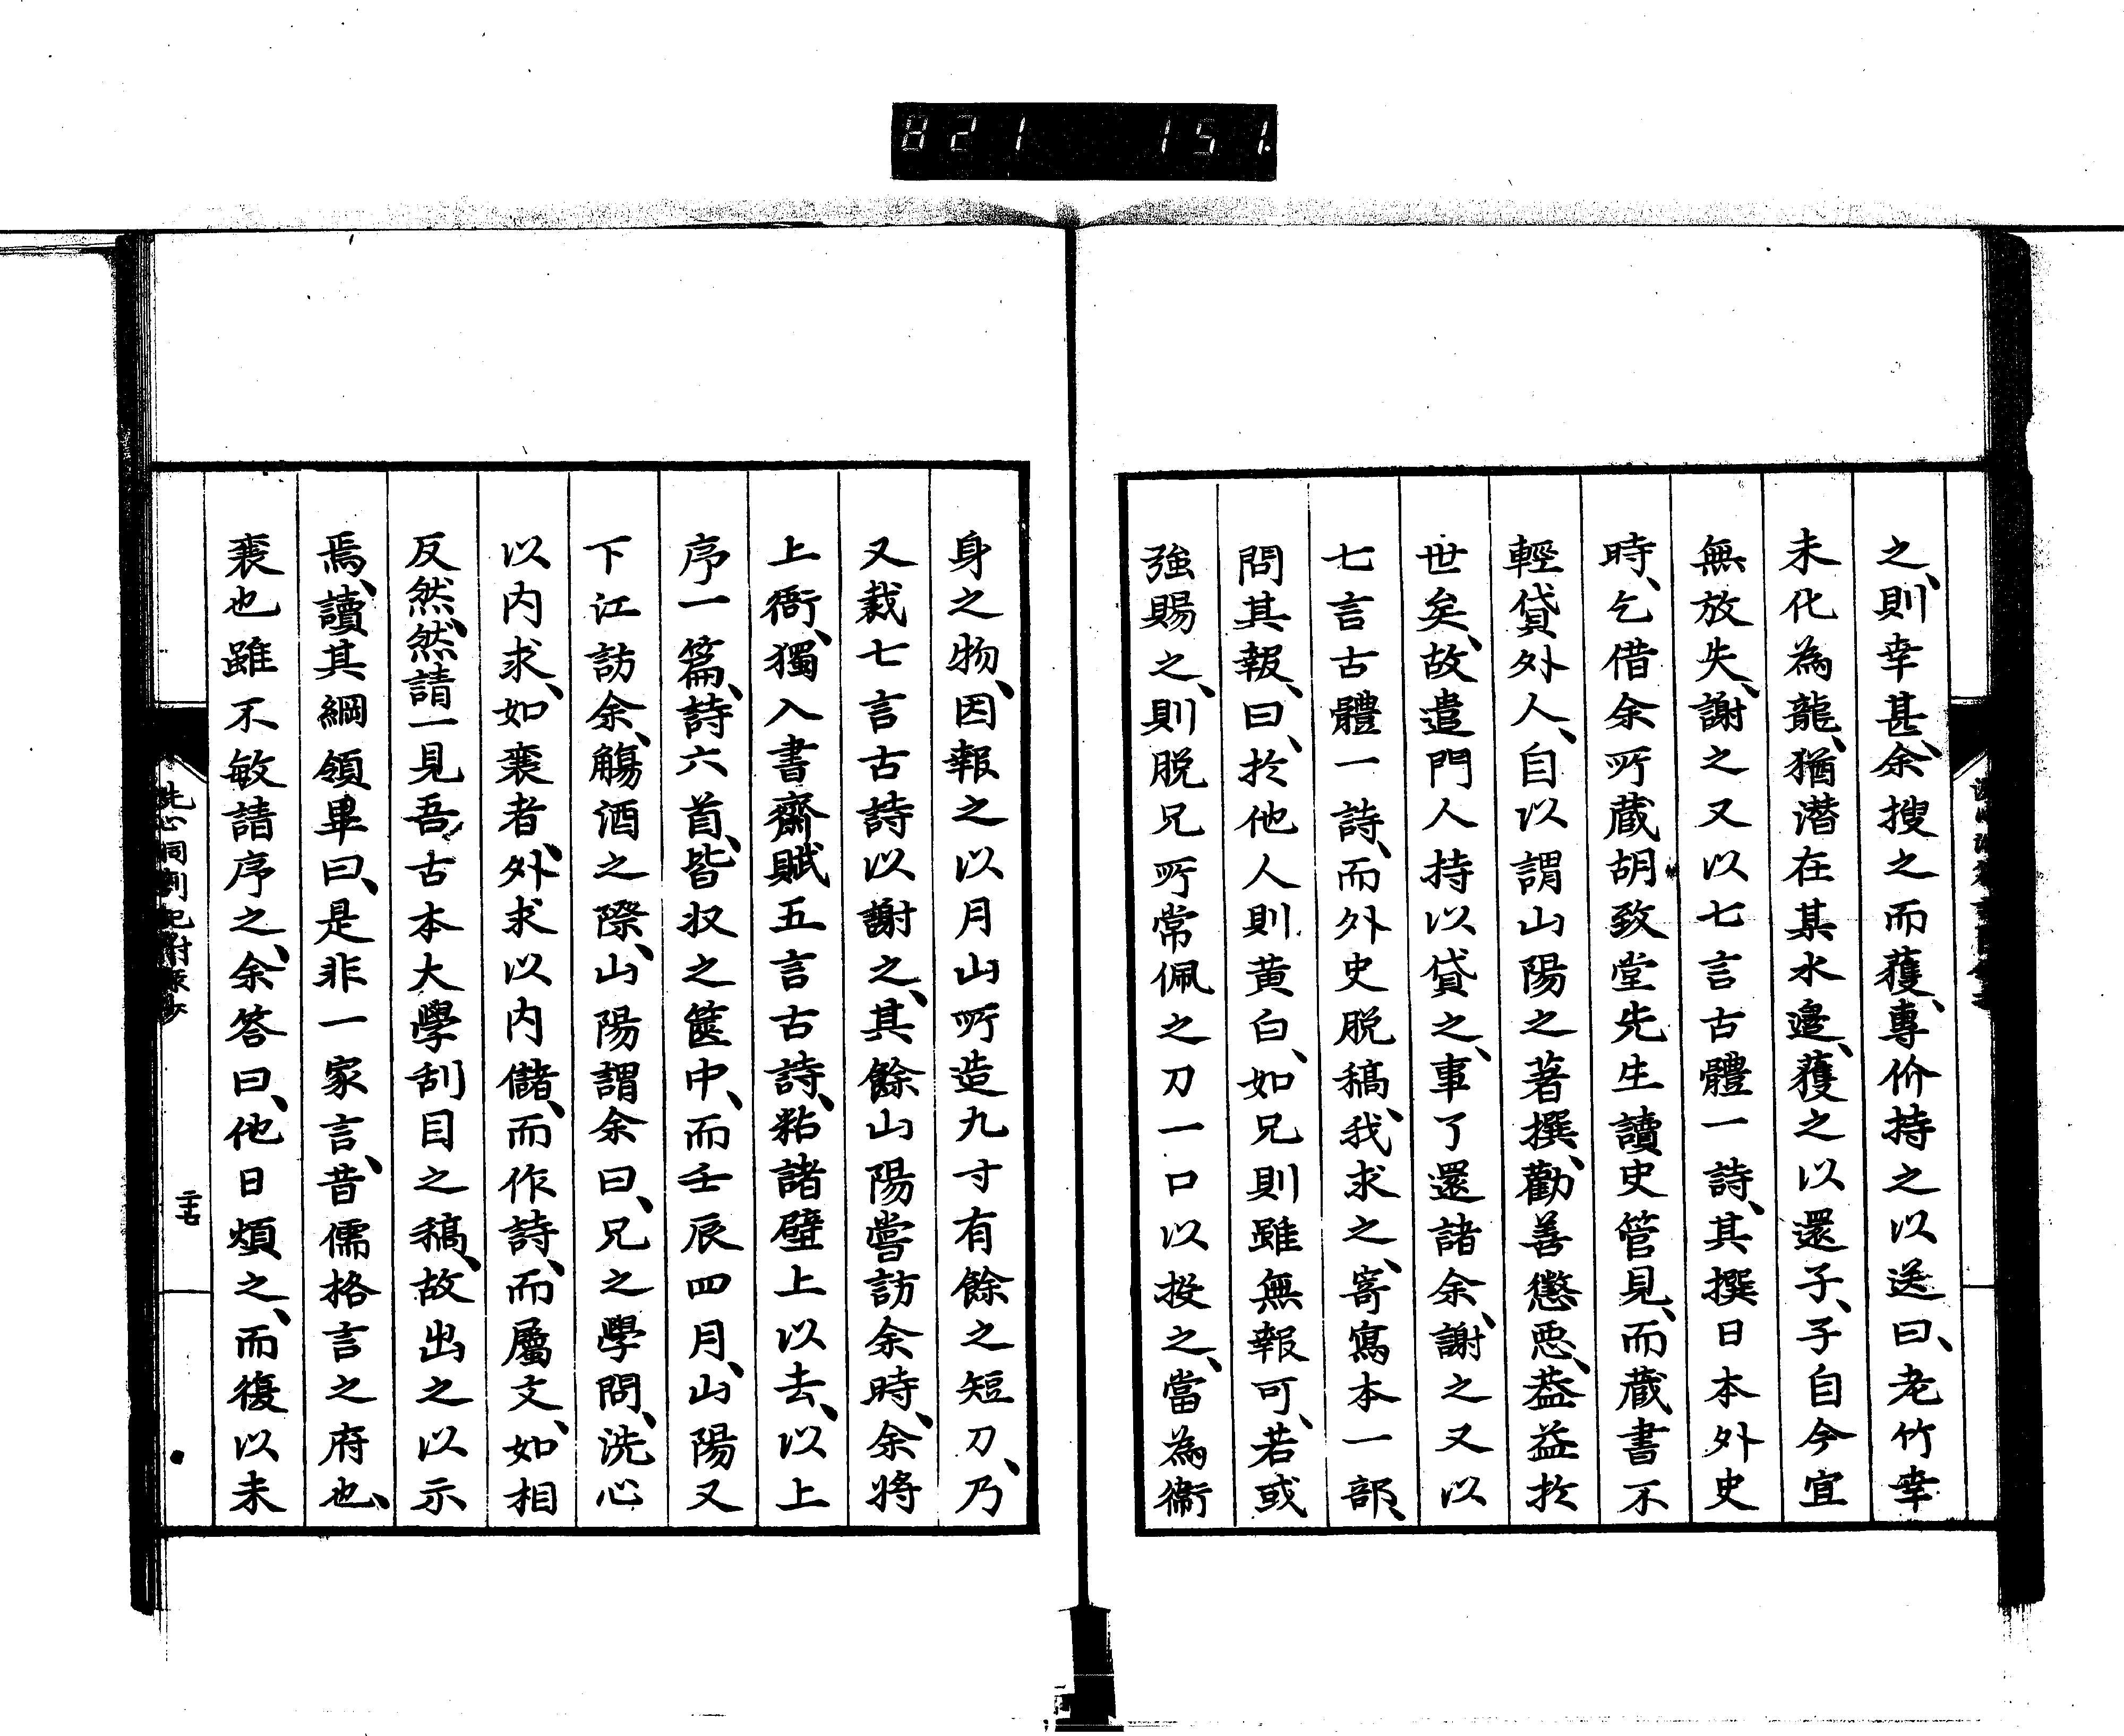 821 151.
之、則幸甚、余搜之而獲、專价持之以送曰、老竹幸
未化為龍、猶潛在某水邉、獲之以還子、子自今宜
無放失、謝之又以七言古體一詩、其撰日本外史
時、乞借余所蔵胡致堂先生讀史管見、而蔵書不
輕貸外人、自以謂山陽之著撰、勸善懲悪、葢益於
世矣、故遣門人持以貸之、事了還諸余、謝之又以
七言古體一詩、而外史脱稿、我求之、寄寫本一部、
問其報、曰、於他人則黄白、如兄則雖無報可、若或
強賜之、則脱兄所常佩之刀一口以投之、當為衞
身之物、因報之以月山所造九寸有餘之短刀、乃
又裁七言古詩以謝之、其餘山陽嘗訪余時、余將
上衙、獨入書齋賦五言古詩、粘諸壁上以去、以上
序一篇、詩六首、皆収之篋中、而壬辰四月、山陽又
下江訪余、觴酒之際、山陽謂余曰、兄之學問、洗心
以内求、如襄者、外求以内儲、而作詩、而屬文、如相
反然、然請一見吾古本大學刮目之稿、故出之以示
焉、讀其綱領畢曰、是非一家言、昔儒格言之府也、
襄也雖不敏請序之、余答曰、他日煩之、而復以未
洗心洞劄記附录抄
二十五